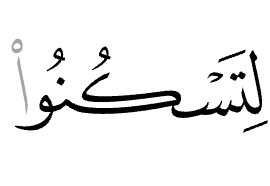 لِتَسْكُنُوا۟